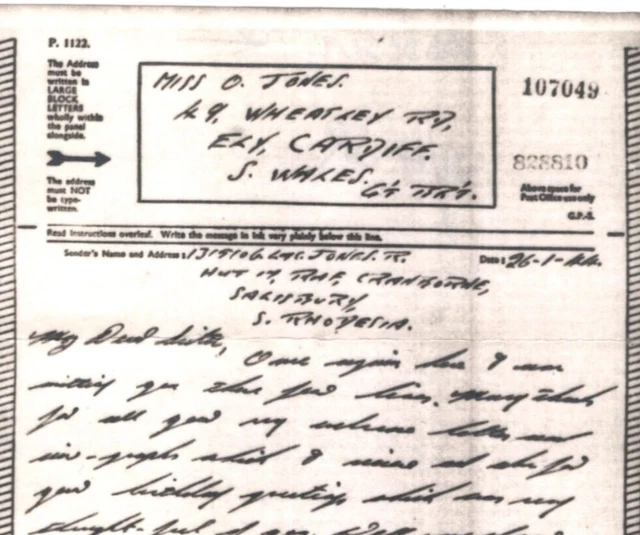 P. 1122.
The Address
must be
written in
LARGE
BLOCK
LETTERS
wholly within
the panel
alongside.
The address
must NOT
be type-
written.
MISS O. JONES.
49, WHEATLEY RD,
ELY, CARDIFF.
S. WALES.
GT BRT.
107049
828810
Above space for
Post Office use only
G.P.O.
Read instructions overleaf. Write the message in ink very plainly below this line.
Sender's Name and Address: LAC. JONES. R. Date: 26-1-44.
HUT 17, RAF, CRANBORNE,
SALISBURY,
S. RHODESIA.
My Dear Sister,
Once again here I am
writing you these few lines. Many thanks
for all your very welcome letters and
air-graphs which I receive and also for
your birthday greetings which was very
thought-ful of you. Well